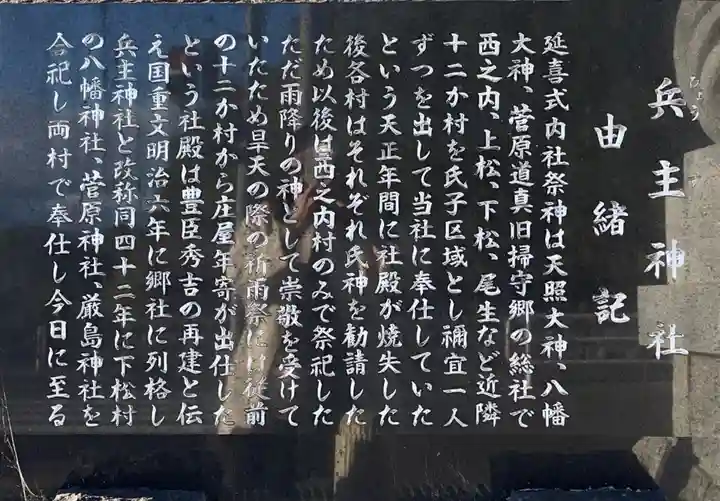 兵主神社
ひょうず
由緒記
延喜式内社祭神は天照大神、八幡
大神、菅原道真旧掃守郷の総社で
西之内、上松、下松、尾生など近隣
十二か村を氏子区域とし禰宜一人
ずつを出して当社に奉仕していた
という天正年間に社殿が焼失した
後各村はそれぞれ氏神を勧請した
ため以後は西之内村のみで祭祀した
ただ雨降りの神として崇敬を受けて
いたため旱天の際の祈雨祭には従前
の十二か村から庄屋年寄が出仕した
という社殿は豊臣秀吉の再建と伝
え国重文明治六年に郷社に列格し
兵主神社と改称同四十二年に下松村
の八幡神社、菅原神社、厳島神社を
合祀し両村で奉仕し今日に至る